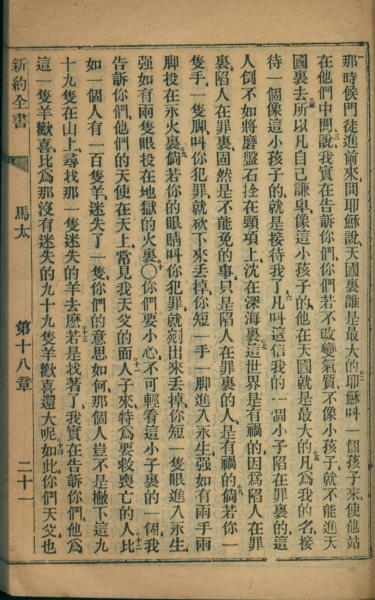 那時候門徒進前來問耶穌說天國裏誰是最大的耶穌叫一個孩子來使他站
在他們中間說我實在告訴你們你們若不改變氣質不像小孩子就不能進天
國裏去所以凡自己謙卑像這小孩子的他在天國就是最大的凡爲我的名接
待一個像這小孩子的就是接待我了凡叫這信我的一個小子陷在罪裏的這
人倒不如將磨盤石拴在頸項上沈在深海裏這世界是有禍的因爲陷人在罪
裏陷人在罪裏固然是不能免的事只是陷人在罪裏的人是有禍的倘若你一
隻手一隻脚叫你犯罪就砍下來丟掉你短一手一脚進入永生強如有兩手兩
脚投在永火裏倘若你的眼睛叫你犯罪就剜出來丟掉你短一隻眼進入永生
強如有兩隻眼投在地獄的火裏〇你們要小心不可輕看這小子裏的一個我
告訴你們他們的天使在天上常見我天父的面人子來特爲要救喪亡的人比
如一個人有一百隻羊迷失了一隻你們的意思如何那個人豈不是撇下這九
十九隻在山上尋找那一隻迷失的羊去麽若是找著了我實在告訴你們他爲
這一隻羊歡喜比爲那沒有迷失的九十九隻羊歡喜還大呢如此你們天父也
新約全書
馬太
第十八章
二十一